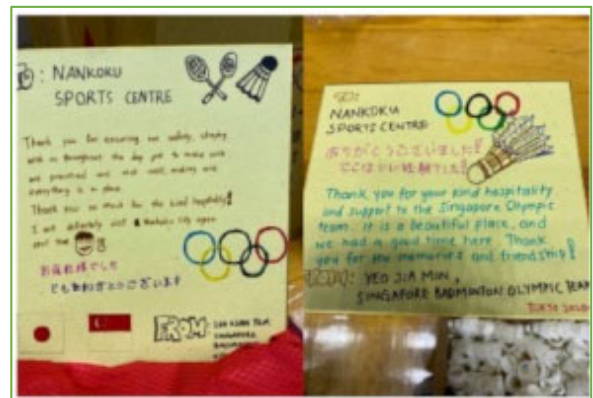 : NANKOKU
SPORTS CENTRE
Thank you for ensuring our safety, staying
with us throughout the day just to make sure
we practiced and rest well, making sure
everything is in place.
Thank you so much for the kind hospitality!
I will definitely visit Nankoku City again
お疲れ様でした
ございます
FROM:
SINGAPORE
NANKOKU
SPORTS CENTRE
ありがとうございました!
Thank you for your kind hospitality
and support to the Singapore Olympic
team. It is a beautiful place, and
we had a good time here. Thank
you for the memories and friendship!
FROM: YEO JIA MIN,
SINGAPORE BADMINTON OLYMPIC TEAM
TOKYO 2020